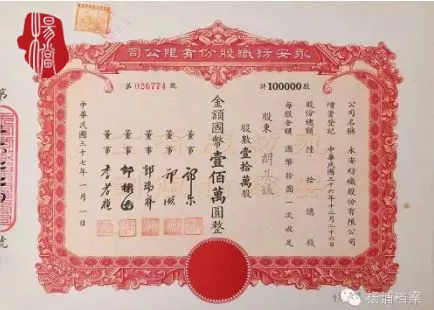 永安紡織股份有限公司
計100000股
第026774號
公司名稱 永安紡織股份有限公司
增資登記 中華民國三十六年十二月二十六日
股份總額 陸拾億股
每股金額 國幣拾圓一次收足
股東 胡
股數壹拾萬股
金額國幣壹佰萬圓整
董事 郭
董事 郭順
董事 郭瑞祥
董事 郭棣活
董事 李若
中華民國三十七年一月一日
第
號
楊檔
杨浦档案